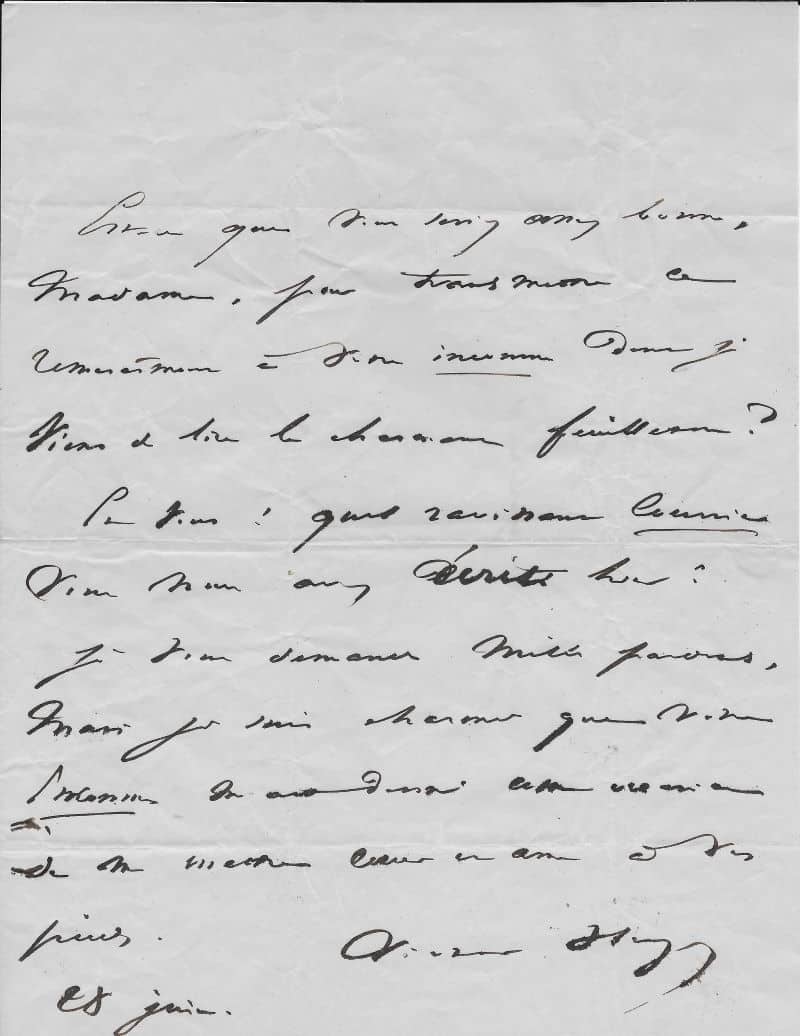 Est-ce que vous serez assez bonne,
Madame, pour transmettre ce
remerciement à votre inconnu dont je
viens de lire le charmant feuilleton?
Et vous! quel ravissant Courrier
vous nous avez écrit hier!
je vous demande mille pardons,
Mais je suis charmé que votre
inconnu m'ait donné cette occasion
de me mettre coeur et ame à vos
pieds.
Victor Hugo
28 juin.